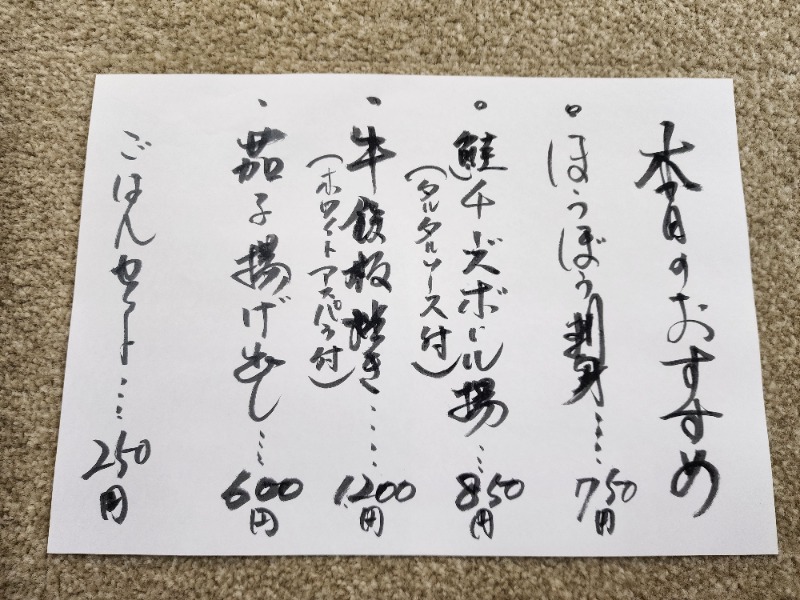 本日のおすすめ
・ほうぼう刺身……750円
・鮭チーズボール揚…850円
(タルタルソース付)
・牛鉄板焼き……1,200円
(ホワイトアスパラ付)
・茄子揚げ出し…600円
ごはんセット…250円